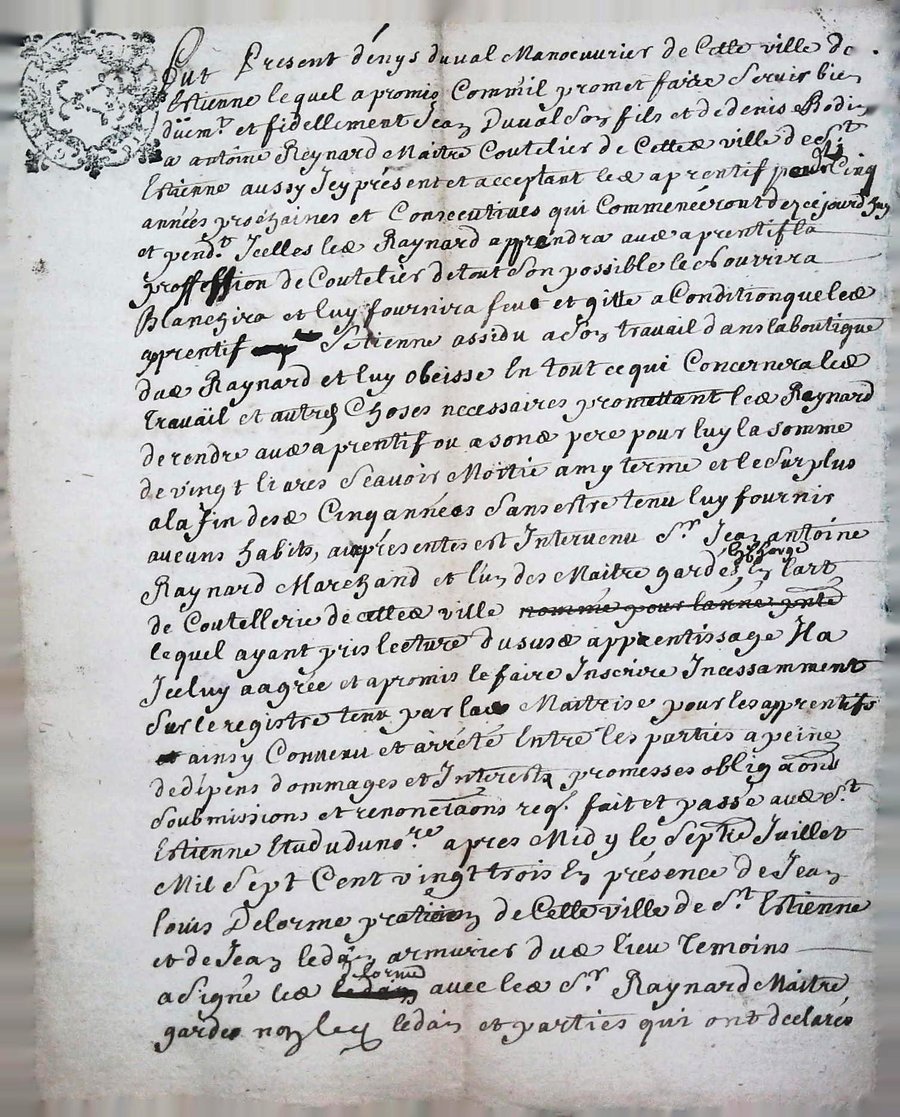 Fut Present dénys duval Manoeuvrier de Cette ville de
Estienne lequel a promis Comm'il promet faire Servir bien
düem.t et fidellement Jean Duval Son fils et de denis Bodin
a antoine Reynard Maitre Coutelier de Cette ville de St
Estienne aussy Icy présent et acceptant led aprentif pour Cinq
années prochaines et Consecutives qui Commenceront dez ce jourd'huy
et pend.t Icelles led Raynard apprendra aud aprentif la
proffession de Coutelier de tout Son possible le Nourrira
Blanchira et luy fournira feu et gitte a Condition que led
aprentif Se tienne assidu a Son travail dans la boutique
dud Raynard et luy obeisse En tout ce qui Concernera led
Travaïl et autres Choses necessaires promettant led Raynard
de rendre aud aprentif ou a Sond pere pour luy la Somme
de vingt livres Scavoir Moitié a my terme et le Surplus
a la fin desd Cinq années Sans estre tenu luy fournir
aucuns habits, aux présentes est Intervenu S.r Jean antoine
en charge
Raynard Marchand et l'un des Maitre gardes En l'art
de Coutellerie de cette ville nommé pour l'anné pnte
lequel ayant pris lecture du susd apprentissage Il a
Iceluy aagrée et a promis le faire Inscrire Incessamment
Sur le registre tenu par lad Maitrise pour les apprentifs
ainsy Convenu et arrété Entre les parties a peine
de dépens dommages et Interests promesses obligaõns
Soubmissions et renonciaõns req.s fait et passé aud S.t
Estienne Etude du no.re apres Midy le Septe Juillet
Mil Sept Cent vingt trois En présence de Jean
louis Delorme praticien de Cette ville de S.t Estienne
et de Jean ledin armurier dud lieu Temoins
lorme
a Signé led avec led S.r Raynard Maitre
garde non led ledin et parties qui ont declarés